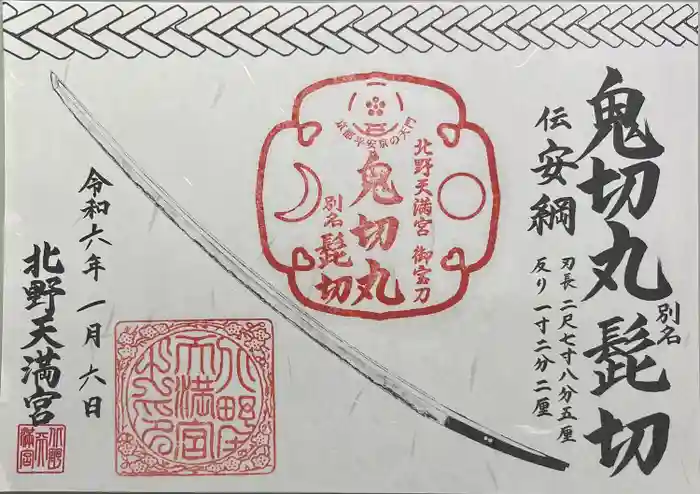 鬼切丸 別名 髭切
伝安綱
刃長 二尺七寸八分五厘
反り 一寸二分二厘
北野天満宮 御宝刀
鬼切丸
別名 髭切
令和六年 一月 六日
北野天満宮
北野天満宮